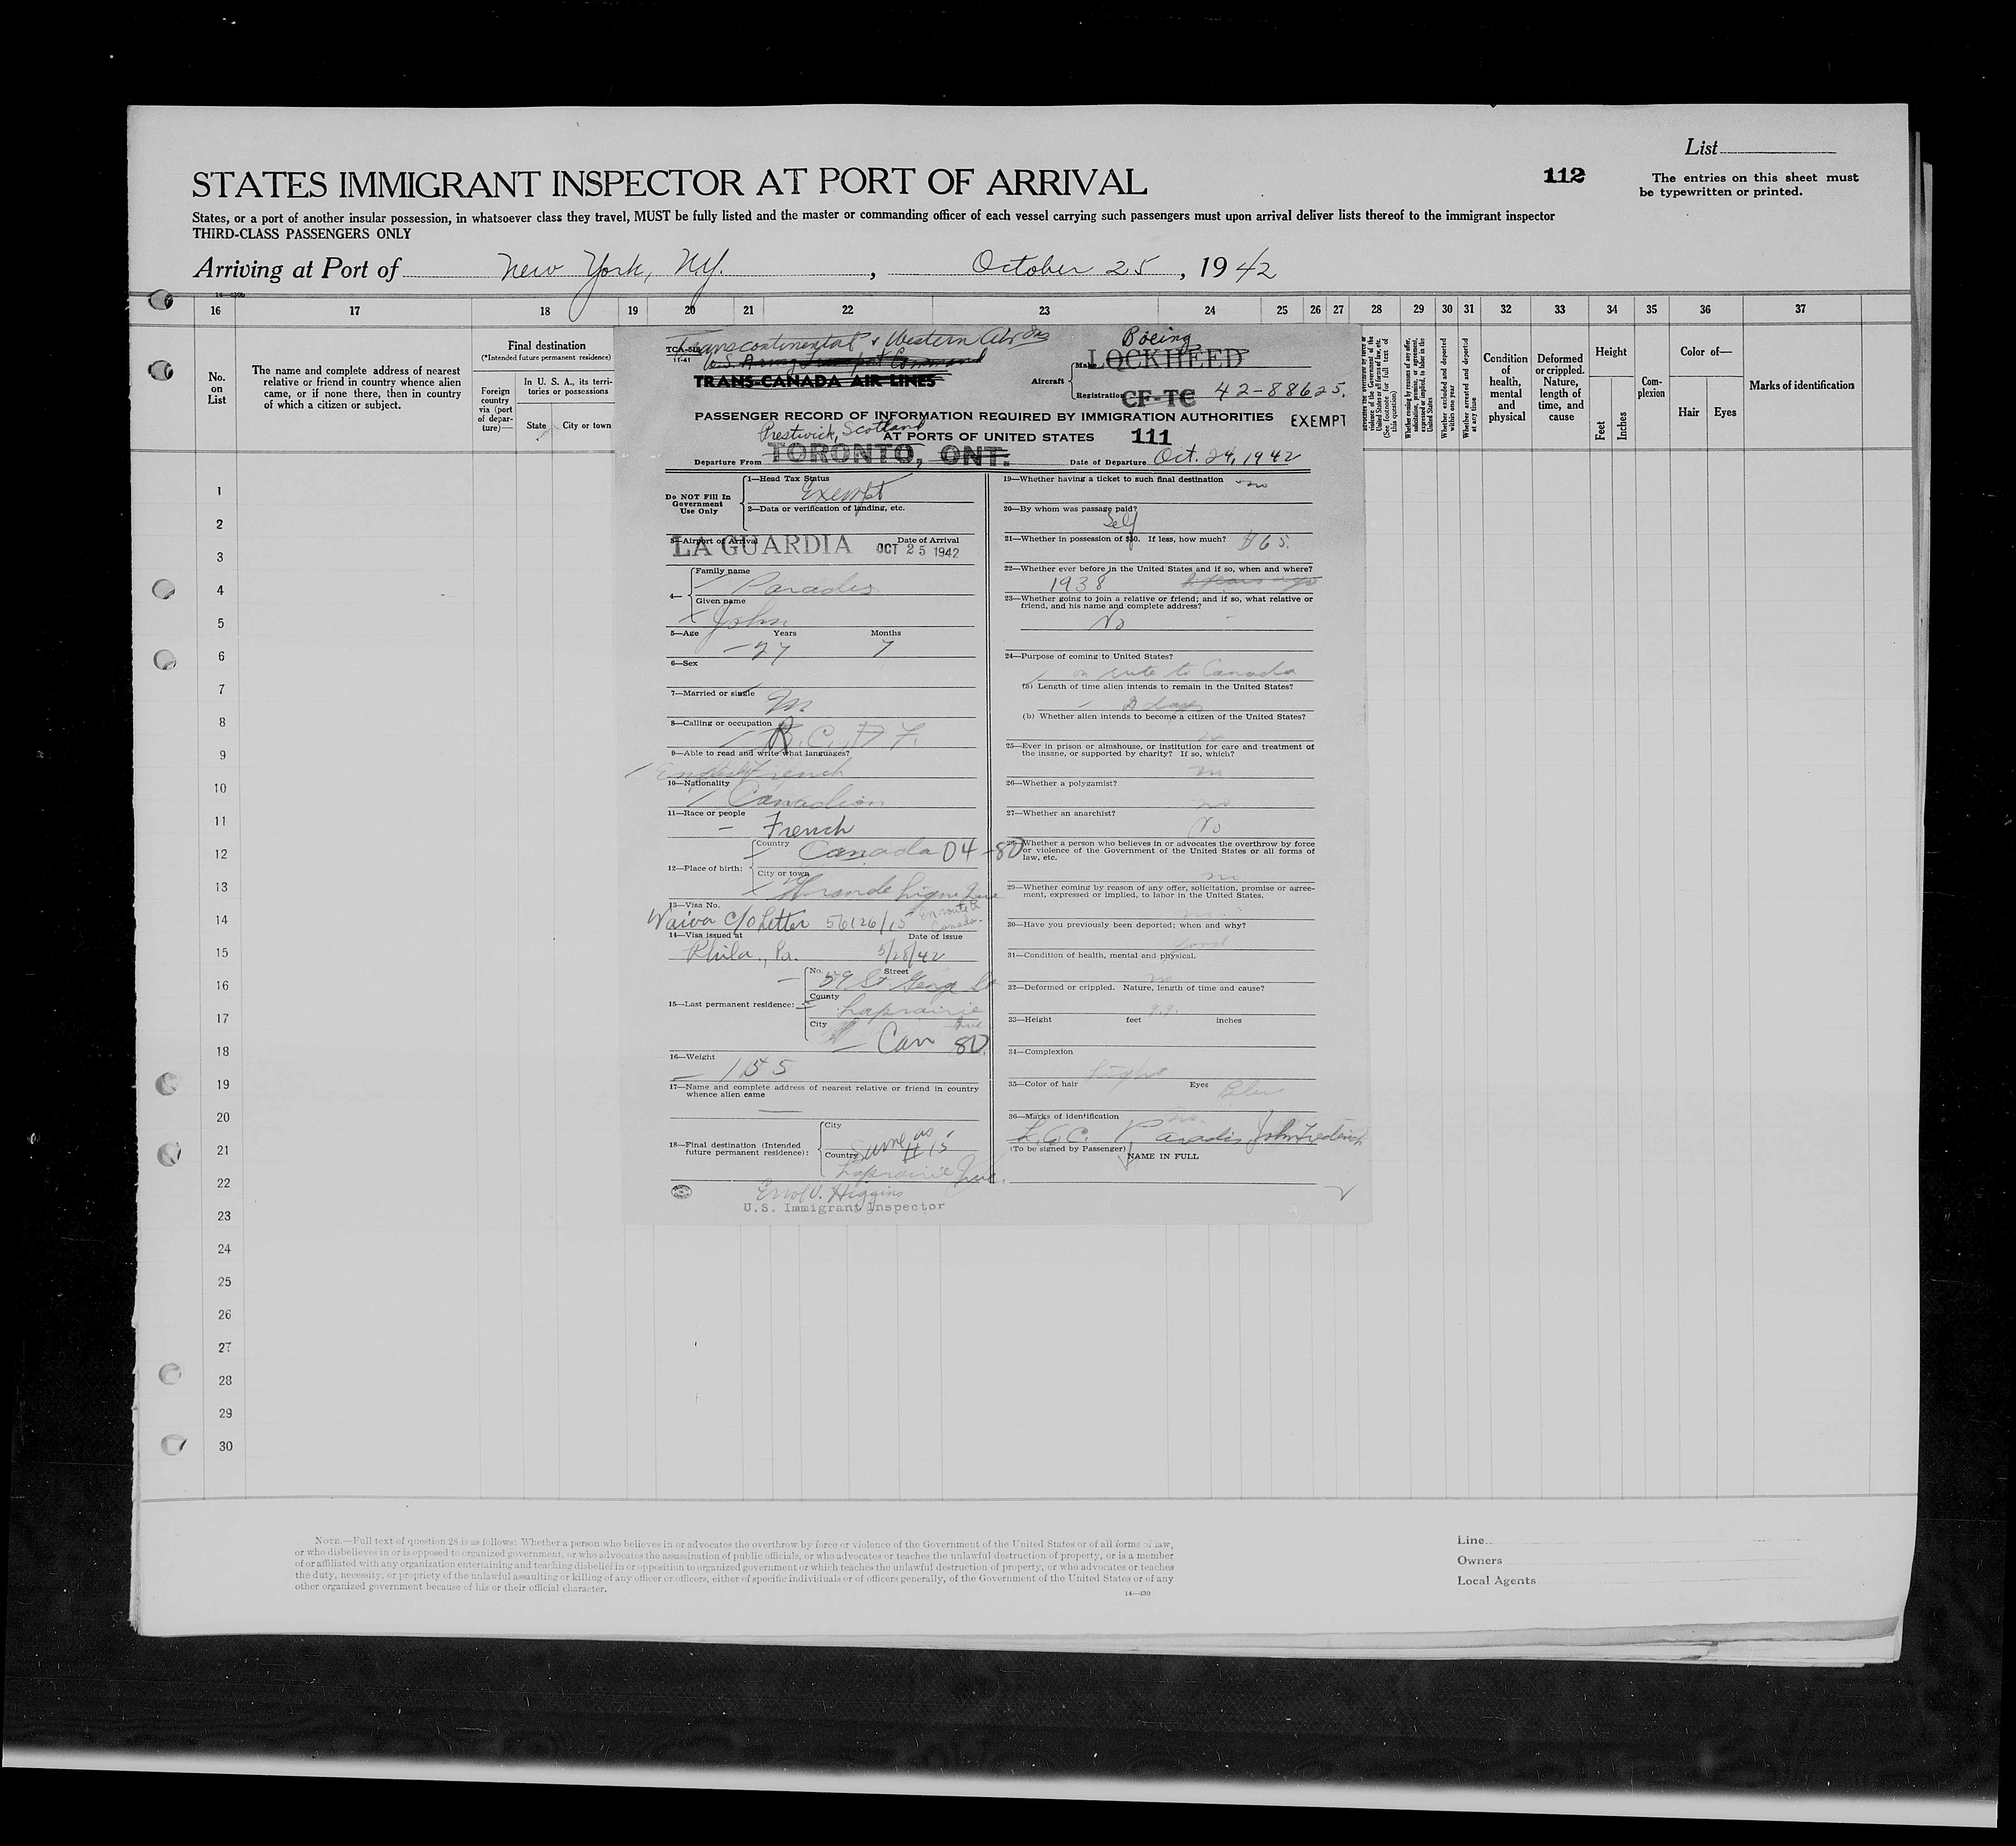 List
112
The entries on this sheet must
be typewritten or printed.
STATES IMMIGRANT INSPECTOR AT PORT OF ARRIVAL
States, or a port of another insular possession, in whatsoever class they travel, MUST be fully listed and the master or commanding officer of each vessel carrying such passengers must upon arrival deliver lists thereof to the immigrant inspector
THIRD-CLASS PASSENGERS ONLY
Arriving at Port of New York, N.Y., October 25, 1942
16 17 18 19 20 21 22 23 24 25 26 27 28 29 30 31 32 33 34 35 36 37
No.
on
List
The name and complete address of nearest
relative or friend in country whence alien
came, or if none there, then in country
of which a citizen or subject.
Final destination
(*Intended future permanent residence)
Foreign
country
via (port
of depar-
ture)—
In U. S. A., its terri-
tories or possessions
State
City or town
Whether excluded and deported
within one year
Whether arrested and deported
at any time
Condition
of
health,
mental
and
physical
Deformed
or crippled.
Nature,
length of
time, and
cause
Height
Feet
Inches
Com-
plexion
Color of—
Hair
Eyes
Marks of identification
Transcontinental & Western Air
TCA-518
11-41
U.S. Army Transport Command
TRANS-CANADA AIR LINES
Aircraft
Make
Boeing
LOCKHEED
Registration CF-TC 42-88625.
PASSENGER RECORD OF INFORMATION REQUIRED BY IMMIGRATION AUTHORITIES
EXEMPT
AT PORTS OF UNITED STATES 111
Prestwick, Scotland
Departure From TORONTO, ONT.
Date of Departure Oct. 24, 1942
Do NOT Fill In
Government
Use Only
1—Head Tax Status
Exempt
2—Data or verification of landing, etc.
3—Airport of Arrival
Date of Arrival
LA GUARDIA OCT 25 1942
4—
Family name
Paradis
Given name
John
5—Age Years Months
27 7
6—Sex
7—Married or single
M
8—Calling or occupation
R.C.A.F.
9—Able to read and write what languages?
English French
10—Nationality
Canadian
11—Race or people
French
12—Place of birth:
Country
Canada 04-8D
City or town
Grande Ligne Que
13—Visa No.
Waiver c/o Letter 56126/15 Enroute to Canada.
14—Visa issued at
Date of issue
Phila., Pa. 5/28/42
15—Last permanent residence:
No. Street
59 St. George St
County
Laprairie
City
Que
Can 8D.
16—Weight
155
17—Name and complete address of nearest relative or friend in country
whence alien came
18—Final destination (Intended
future permanent residence):
City
Country
Same as # 15
Laprairie Que.
Errol V. Higgins
U.S. Immigrant Inspector
19—Whether having a ticket to such final destination no
20—By whom was passage paid?
Self
21—Whether in possession of $50. If less, how much? $65.
22—Whether ever before in the United States and if so, when and where?
1938
23—Whether going to join a relative or friend; and if so, what relative or
friend, and his name and complete address?
No
24—Purpose of coming to United States?
on route to Canada
(a) Length of time alien intends to remain in the United States?
2 days
(b) Whether alien intends to become a citizen of the United States?
no
25—Ever in prison or almshouse, or institution for care and treatment of
the insane, or supported by charity? If so, which?
no
26—Whether a polygamist?
no
27—Whether an anarchist?
No
28—Whether a person who believes in or advocates the overthrow by force
or violence of the Government of the United States or all forms of
law, etc.
no
29—Whether coming by reason of any offer, solicitation, promise or agree-
ment, expressed or implied, to labor in the United States.
no
30—Have you previously been deported; when and why?
good
31—Condition of health, mental and physical.
no
32—Deformed or crippled. Nature, length of time and cause?
33—Height feet inches
34—Complexion
Light
35—Color of hair
Eyes
Blue
36—Marks of identification
L.A.C. Paradis, John Frederick
(To be signed by Passenger)
NAME IN FULL
1
2
3
4
5
6
7
8
9
10
11
12
13
14
15
16
17
18
19
20
21
22
23
24
25
26
27
28
29
30
NOTE.—Full text of question 28 is as follows: Whether a person who believes in or advocates the overthrow by force or violence of the Government of the United States or of all forms of law,
or who disbelieves in or is opposed to organized government, or who advocates the assassination of public officials, or who advocates or teaches the unlawful destruction of property, or is a member
of or affiliated with any organization entertaining and teaching disbelief in or opposition to organized government or which teaches the unlawful destruction of property, or who advocates or teaches
the duty, necessity, or propriety of the unlawful assaulting or killing of any officer or officers, either of specific individuals or of officers generally, of the Government of the United States or of any
other organized government because of his or their official character.
14—430
Line
Owners
Local Agents